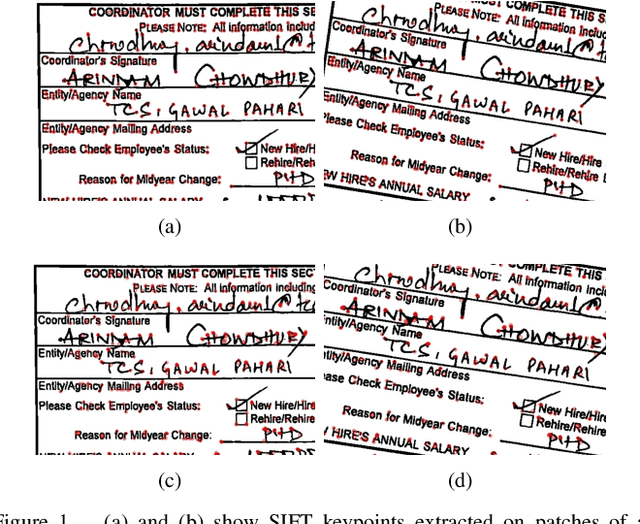 COORDINATOR MUST COMPLETE THIS SE
PLEASE NOTE: All information includ
Chowdhury, arindam1@t
Coordinator's Signature
ARINDAM CHOWDHURY
Entity/Agency Name
TCS, GAWAL PAHARI
Entity/Agency Mailing Address
Please Check Employee's Status:
New Hire/H
Rehire/Rehire
Reason for Midyear Change: PHD
NEW HIRE'S ANNUAL SALARY
(a)
PLEASE NOTE: All information includ
Chowdhury, arindam1@t
Coordinator's Signature
ARINDAM CHOWDHURY
Entity/Agency Name
TCS, GAWAL PAHARI
Entity/Agency Mailing Address
Please Check Employee's Status:
New Hire/Hire
Rehire/Rehire
Reason for Midyear Change: PHD
EW HIRE'S ANNUAL SALARY
(b)
COORDINATOR MUST COMPLETE THIS SEC
PLEASE NOTE: All information including
Chowdhury, arindam1@tc
Coordinator's Signature
ARINDAM CHOWDHURY
Entity/Agency Name
TCS, GAWAL PAHARI
Entity/Agency Mailing Address
Please Check Employee's Status:
New Hire/Hire
Rehire/Rehire
Reason for Midyear Change: PHD
(c)
PLEASE NOTE: All information
Chowdhury, arindam1@
Coordinator's Signature
ARINDAM CHOWDHURY
Entity/Agency Name
TCS, GAWAL PAHARI
ntity/Agency Mailing Address
ase Check Employee's Status:
New Hire/Hire
Rehire/Rehire
Reason for Midyear Change: PHD
W HIRE'S ANNUAL SALARY
(d)
Figure 1. (a) and (b) show SIFT keypoints extracted on patches of